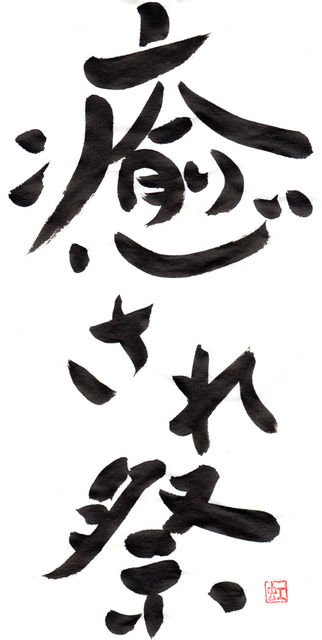 癒され祭
虹